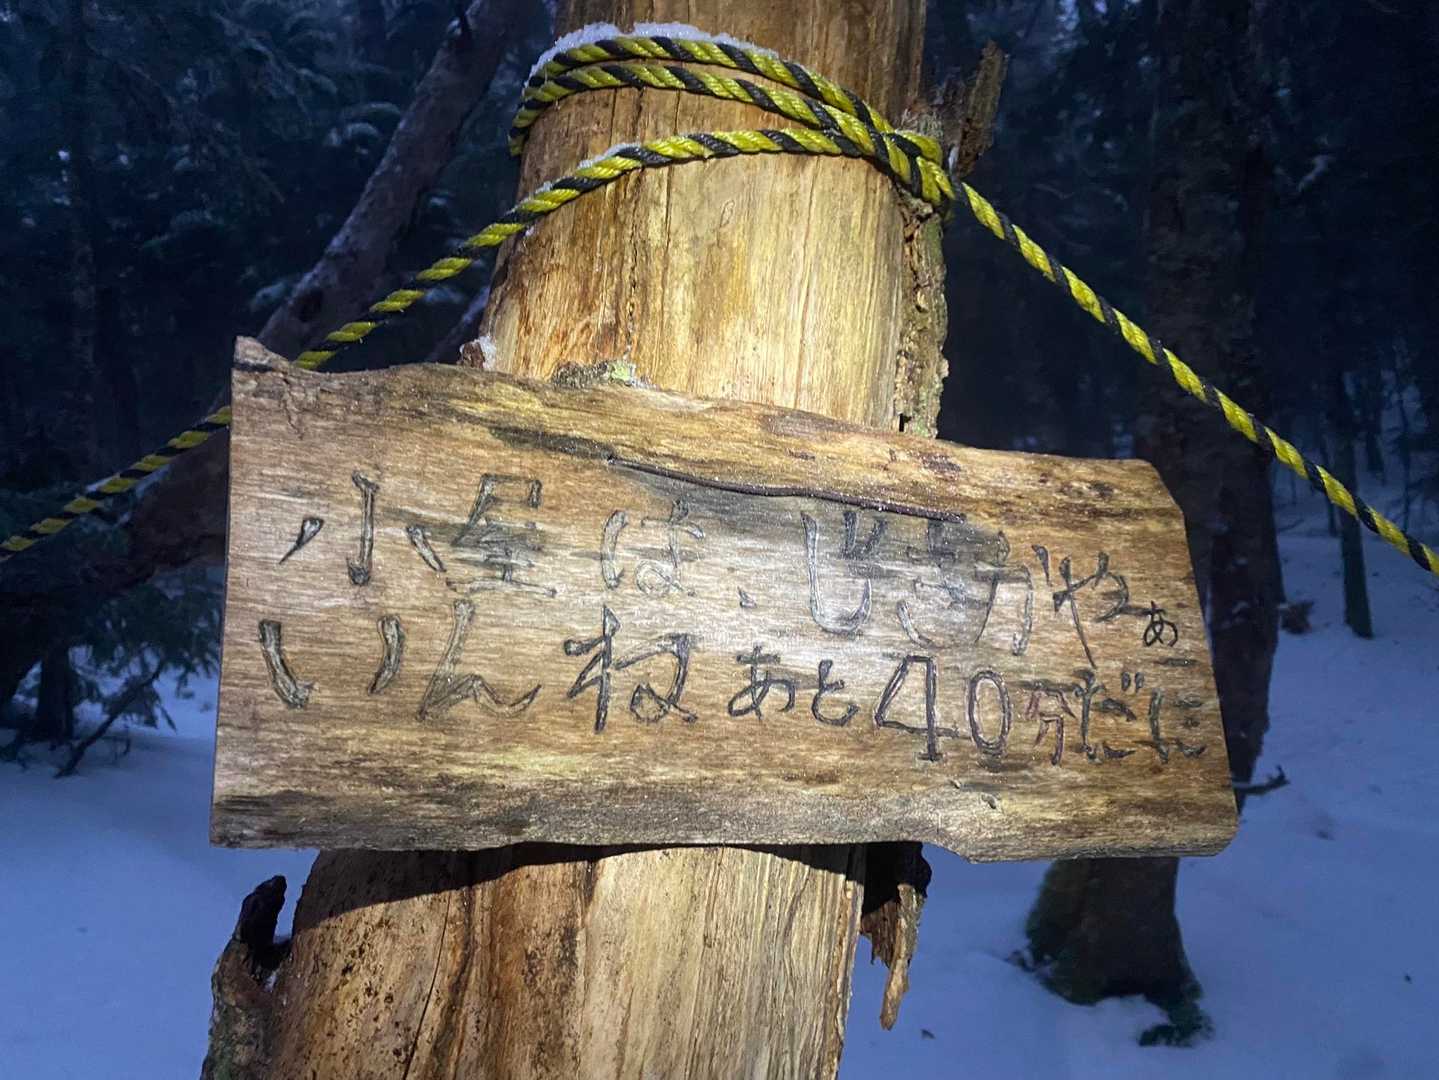 小屋は、じきかやぁ
いんね あと40分だに